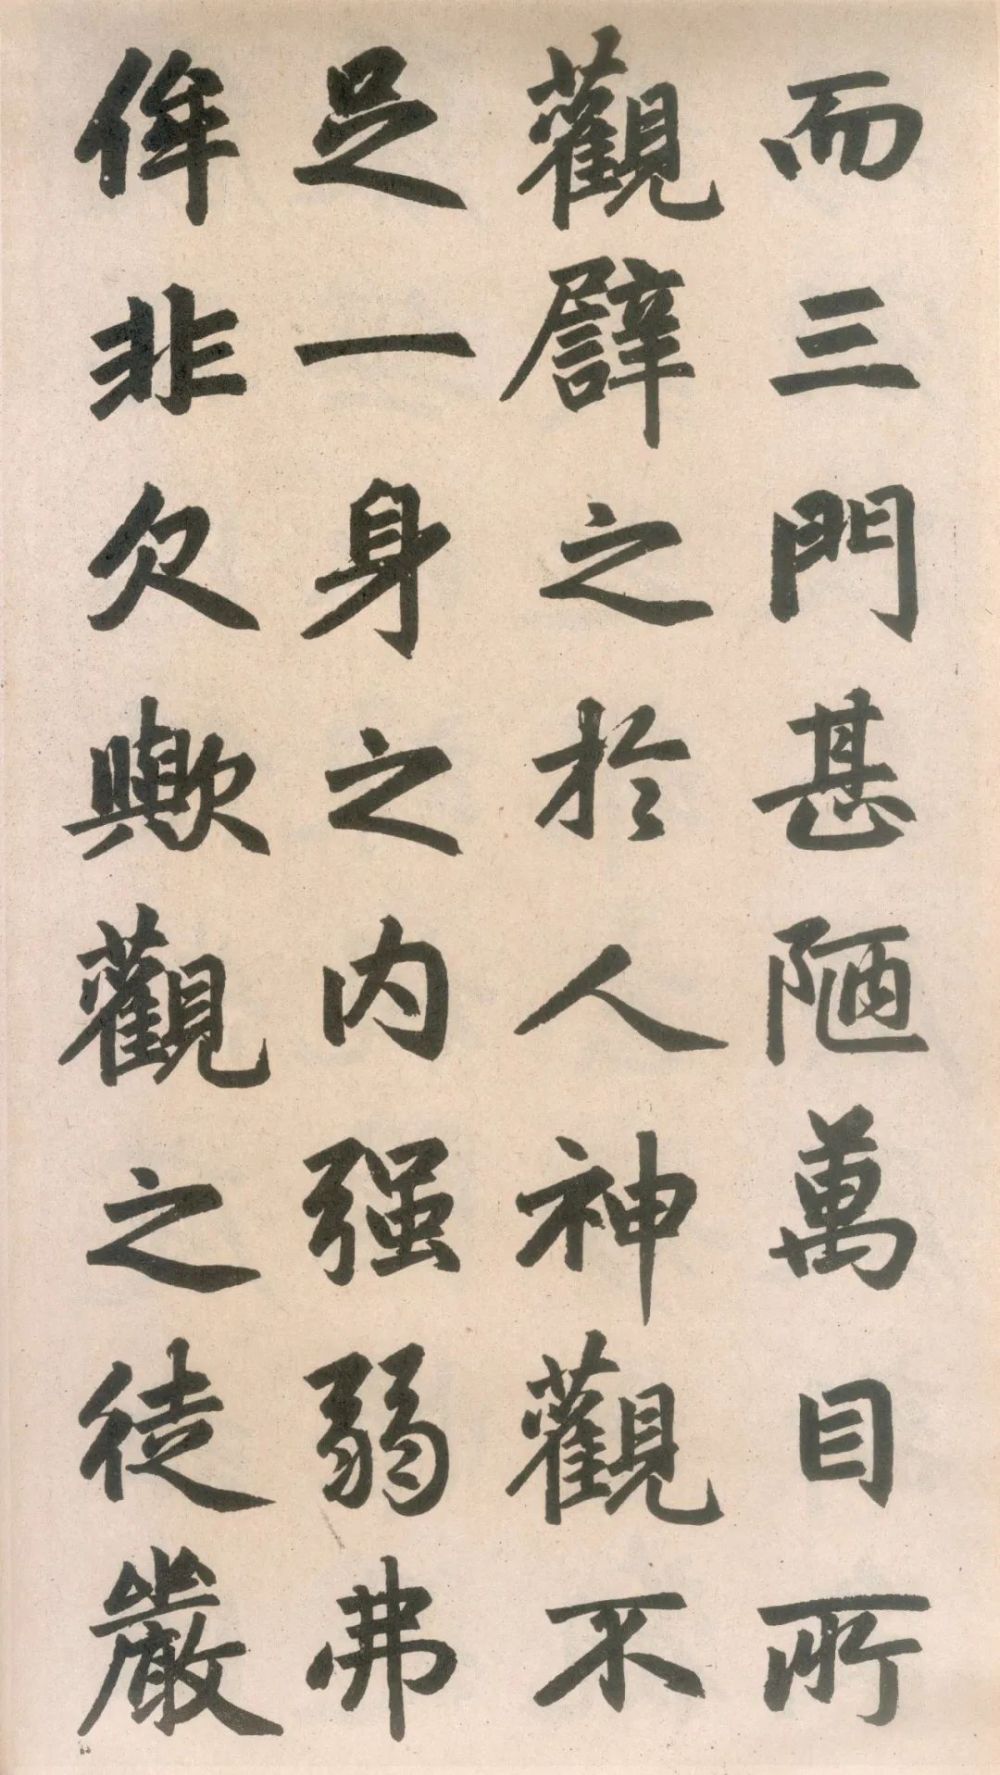 而三門甚陋萬目所
觀譬之於人神觀不
足一身之內强弱弗
侔非欠歟觀之徒嚴